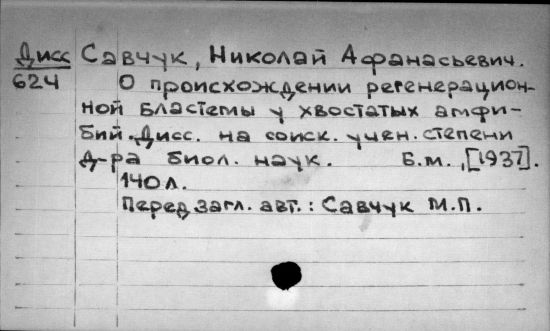 Дисс Савчук, Николай Афанасьевич.
624 О происхождении регенерацион-
ной бластемы у хвостатых амфи-
бий. Дисс. на соиск. учен. степени
д-ра биол. наук. Б.м., [1937].
140 л.
Перед загл. авт.: Савчук М.П.